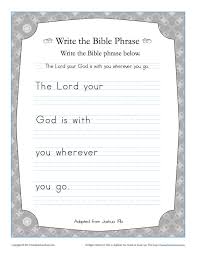 Write the Bible Phrase
Write the Bible phrase below.
The Lord your God is with you wherever you go.
The Lord your
God is with
you wherever
you go.
Adapted from Joshua 1:9